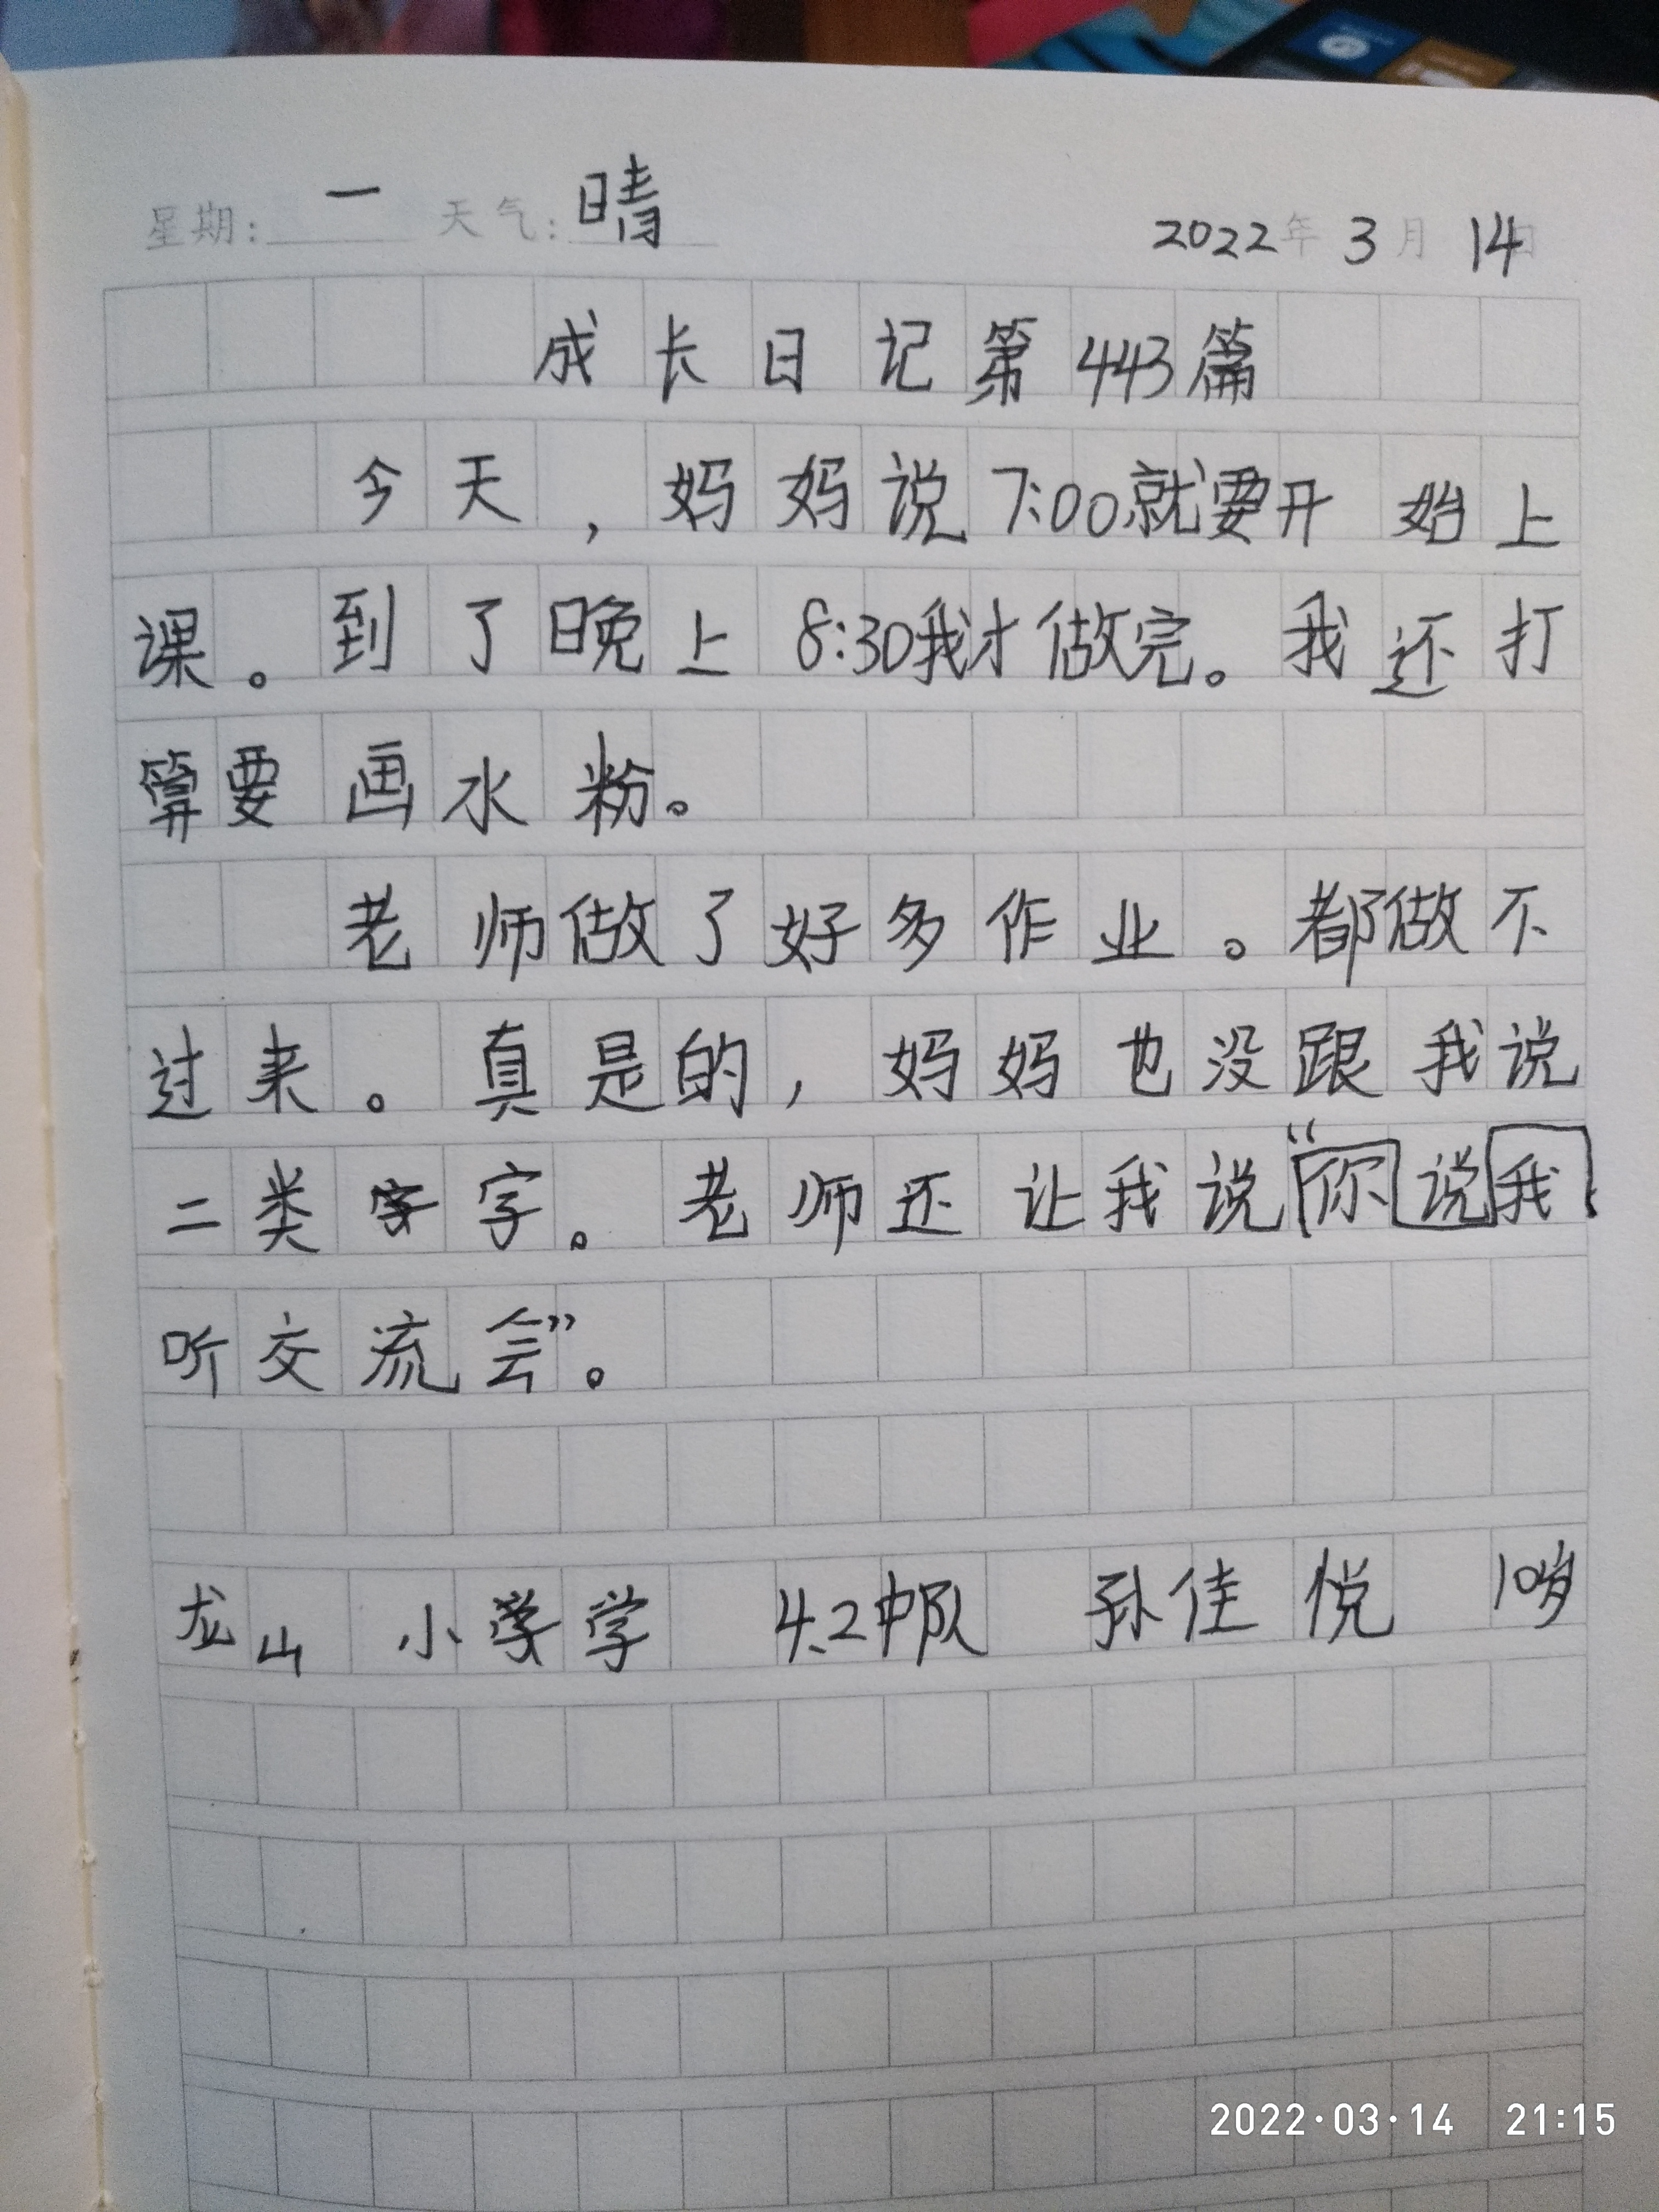 星期: 一 天气: 晴 2022年 3月 14日
成长日记第443篇
今天，妈妈说7:00就要开始上
课。到了晚上8:30我才做完。我还打
算要画水粉。
老师做了好多作业。都做不
过来。真是的，妈妈也没跟我说
二类字。老师还让我说“你说我
听交流会”。
龙山小学 4.2中队 孙佳悦 10岁
2022·03·14 21:15